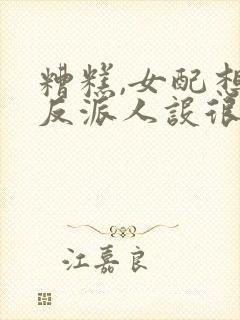 糟糕,女配想
反派人設很
江嘉良